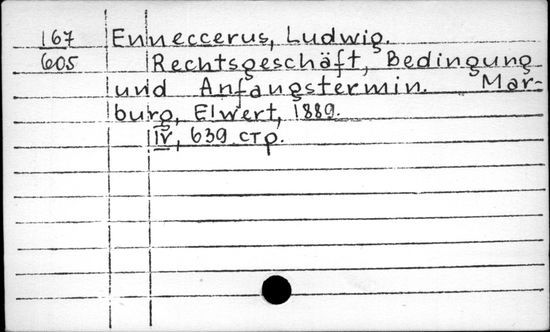 167 Enneccerus, Ludwig.
605 Rechtsgeschäft, Bedingung
und Anfangstermin. Mar-
burg, Elwert, 1889.
IV, 639 стр.